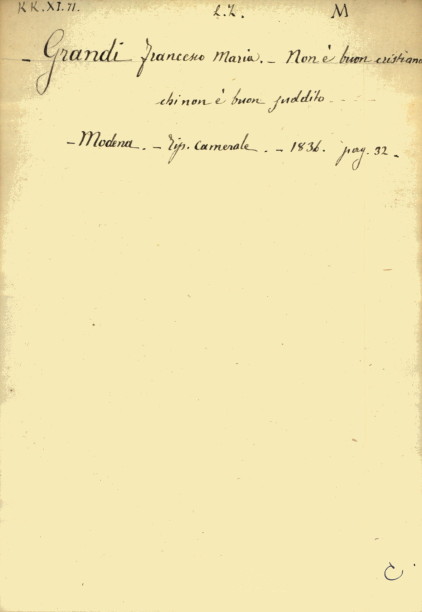 KK.XI.71. L.L. M
- Grandi Francesco Maria. - Non è buon cristiano
chi non è buon suddito - - - -
- Modena. - Tip. Camerale. - 1836. pag. 32 -
C.